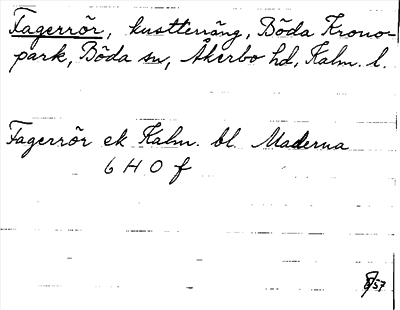 Fagerrör, kustterräng, Böda Krono-
park, Böda sn, Åkerbo hd, Kalm. l.
Fagerrör ek Kalm. bl. Maderna
6 H 0 f